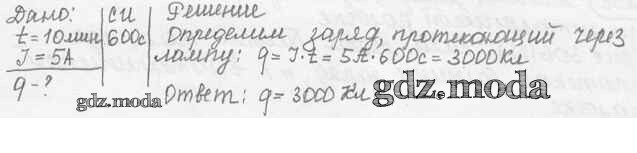 Дано: СИ Решение
t = 10 мин 600с Определим заряд, протекающий через
I = 5А лампу: q = I·t = 5А·600с = 3000Кл
q - ?
Ответ: q = 3000 Кл.
gdz.moda
gdz.moda